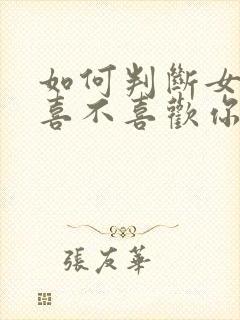 如何判斷女
喜不喜歡你
張友華